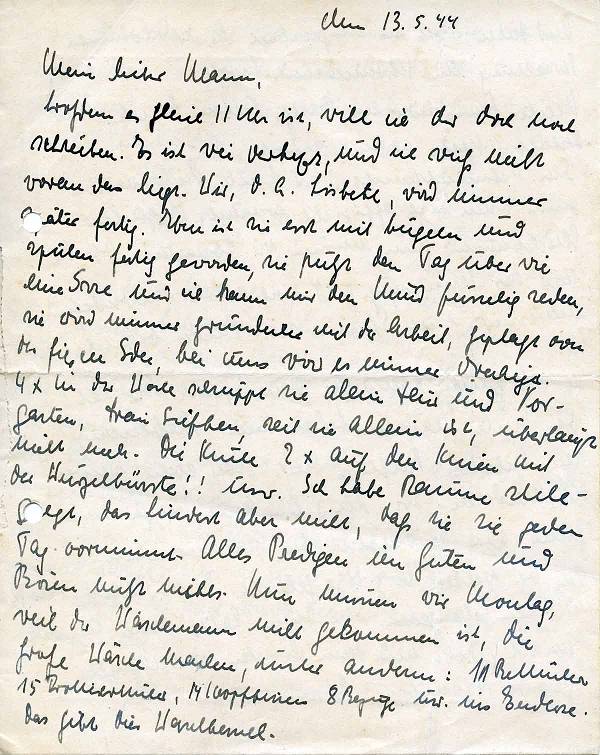 den 13.5.44
Mein lieber Mann,
trotzdem es gleich 11 Uhr ist, will ich Dir doch noch
schreiben. Es ist wie verhext, und ich weiß nicht
woran das liegt. Wir, d. h. Lisbeth, wird immer
später fertig. Nun ist sie erst mit bügeln und
spülen fertig geworden, sie putzt den Tag über wie
eine und ich kann mir den Mund fusselig reden,
sie wird immer gründlicher mit der Arbeit, geplagt von
der Ede, bei uns wird es immer dreckig.
4 x in der Woche schruppt sie allein und Vor-
garten, seit sie allein ist, überhaupt
nicht mehr. Die Küche 2 x auf den Knien mit
der Wurzelbürste!! usw. Ich habe Räume stille-
gelegt, das hindert aber nicht, daß sie sie jeden
Tag vornimmt. Alles Predigen im Guten und
Bösen nützt nichts. Nun müssen wir Montag,
weil der Wäschemann nicht gekommen ist, die
große Wäsche machen, unter anderem: 11 Bettücher
15 14 Kopfkissen 8 Bezüge usw. ins Endlose.
Das gibt